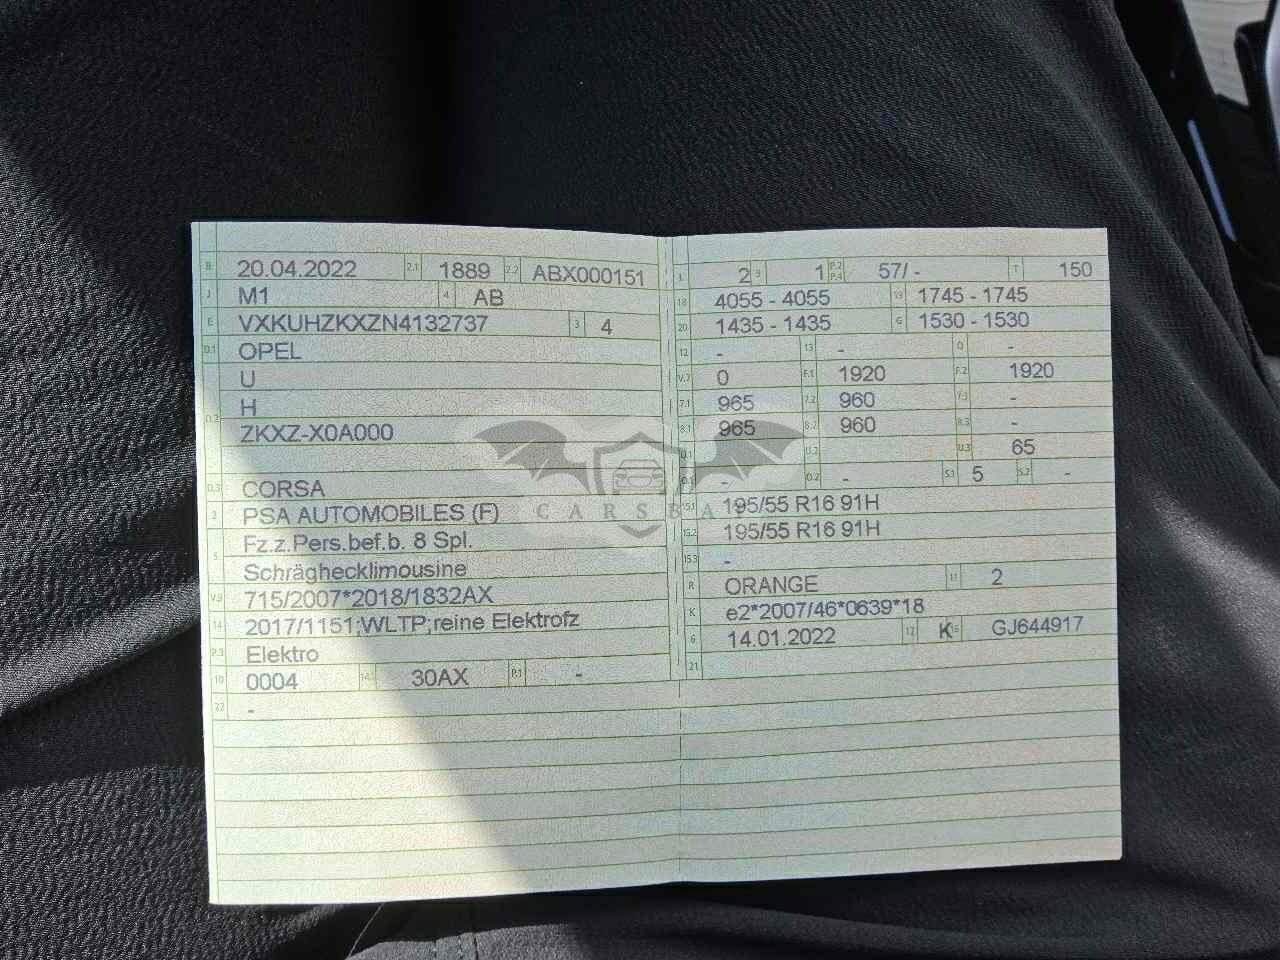 B 20.04.2022 2.1 1889 2.2 ABX000151
J M1 4 AB
E VXKUHZKXZN4132737 3 4
D.1 OPEL
U
D.2 H
ZKXZ-X0A000
D.3 CORSA
2 PSA AUTOMOBILES (F)
5 Fz.z.Pers.bef.b. 8 Spl.
Schräghecklimousine
V.9 715/2007*2018/1832AX
14 2017/1151;WLTP;reine Elektrofz
P.3 Elektro
10 0004 14.1 30AX P.1 -
22 -
L 2 9 1 P.2 P.4 57/ - T 150
18 4055 - 4055 19 1745 - 1745
20 1435 - 1435 G 1530 - 1530
12 - 13 - Q -
V.7 0 F.1 1920 F.2 1920
7.1 965 7.2 960 7.3 -
8.1 965 8.2 960 8.3 -
U.1 U.2 U.3 65
O.1 - O.2 - S.1 5 S.2 -
15.1 195/55 R16 91H
15.2 195/55 R16 91H
15.3 -
R ORANGE 11 2
K e2*2007/46*0639*18
6 14.01.2022 17 K 16 GJ644917
21
CARSBA